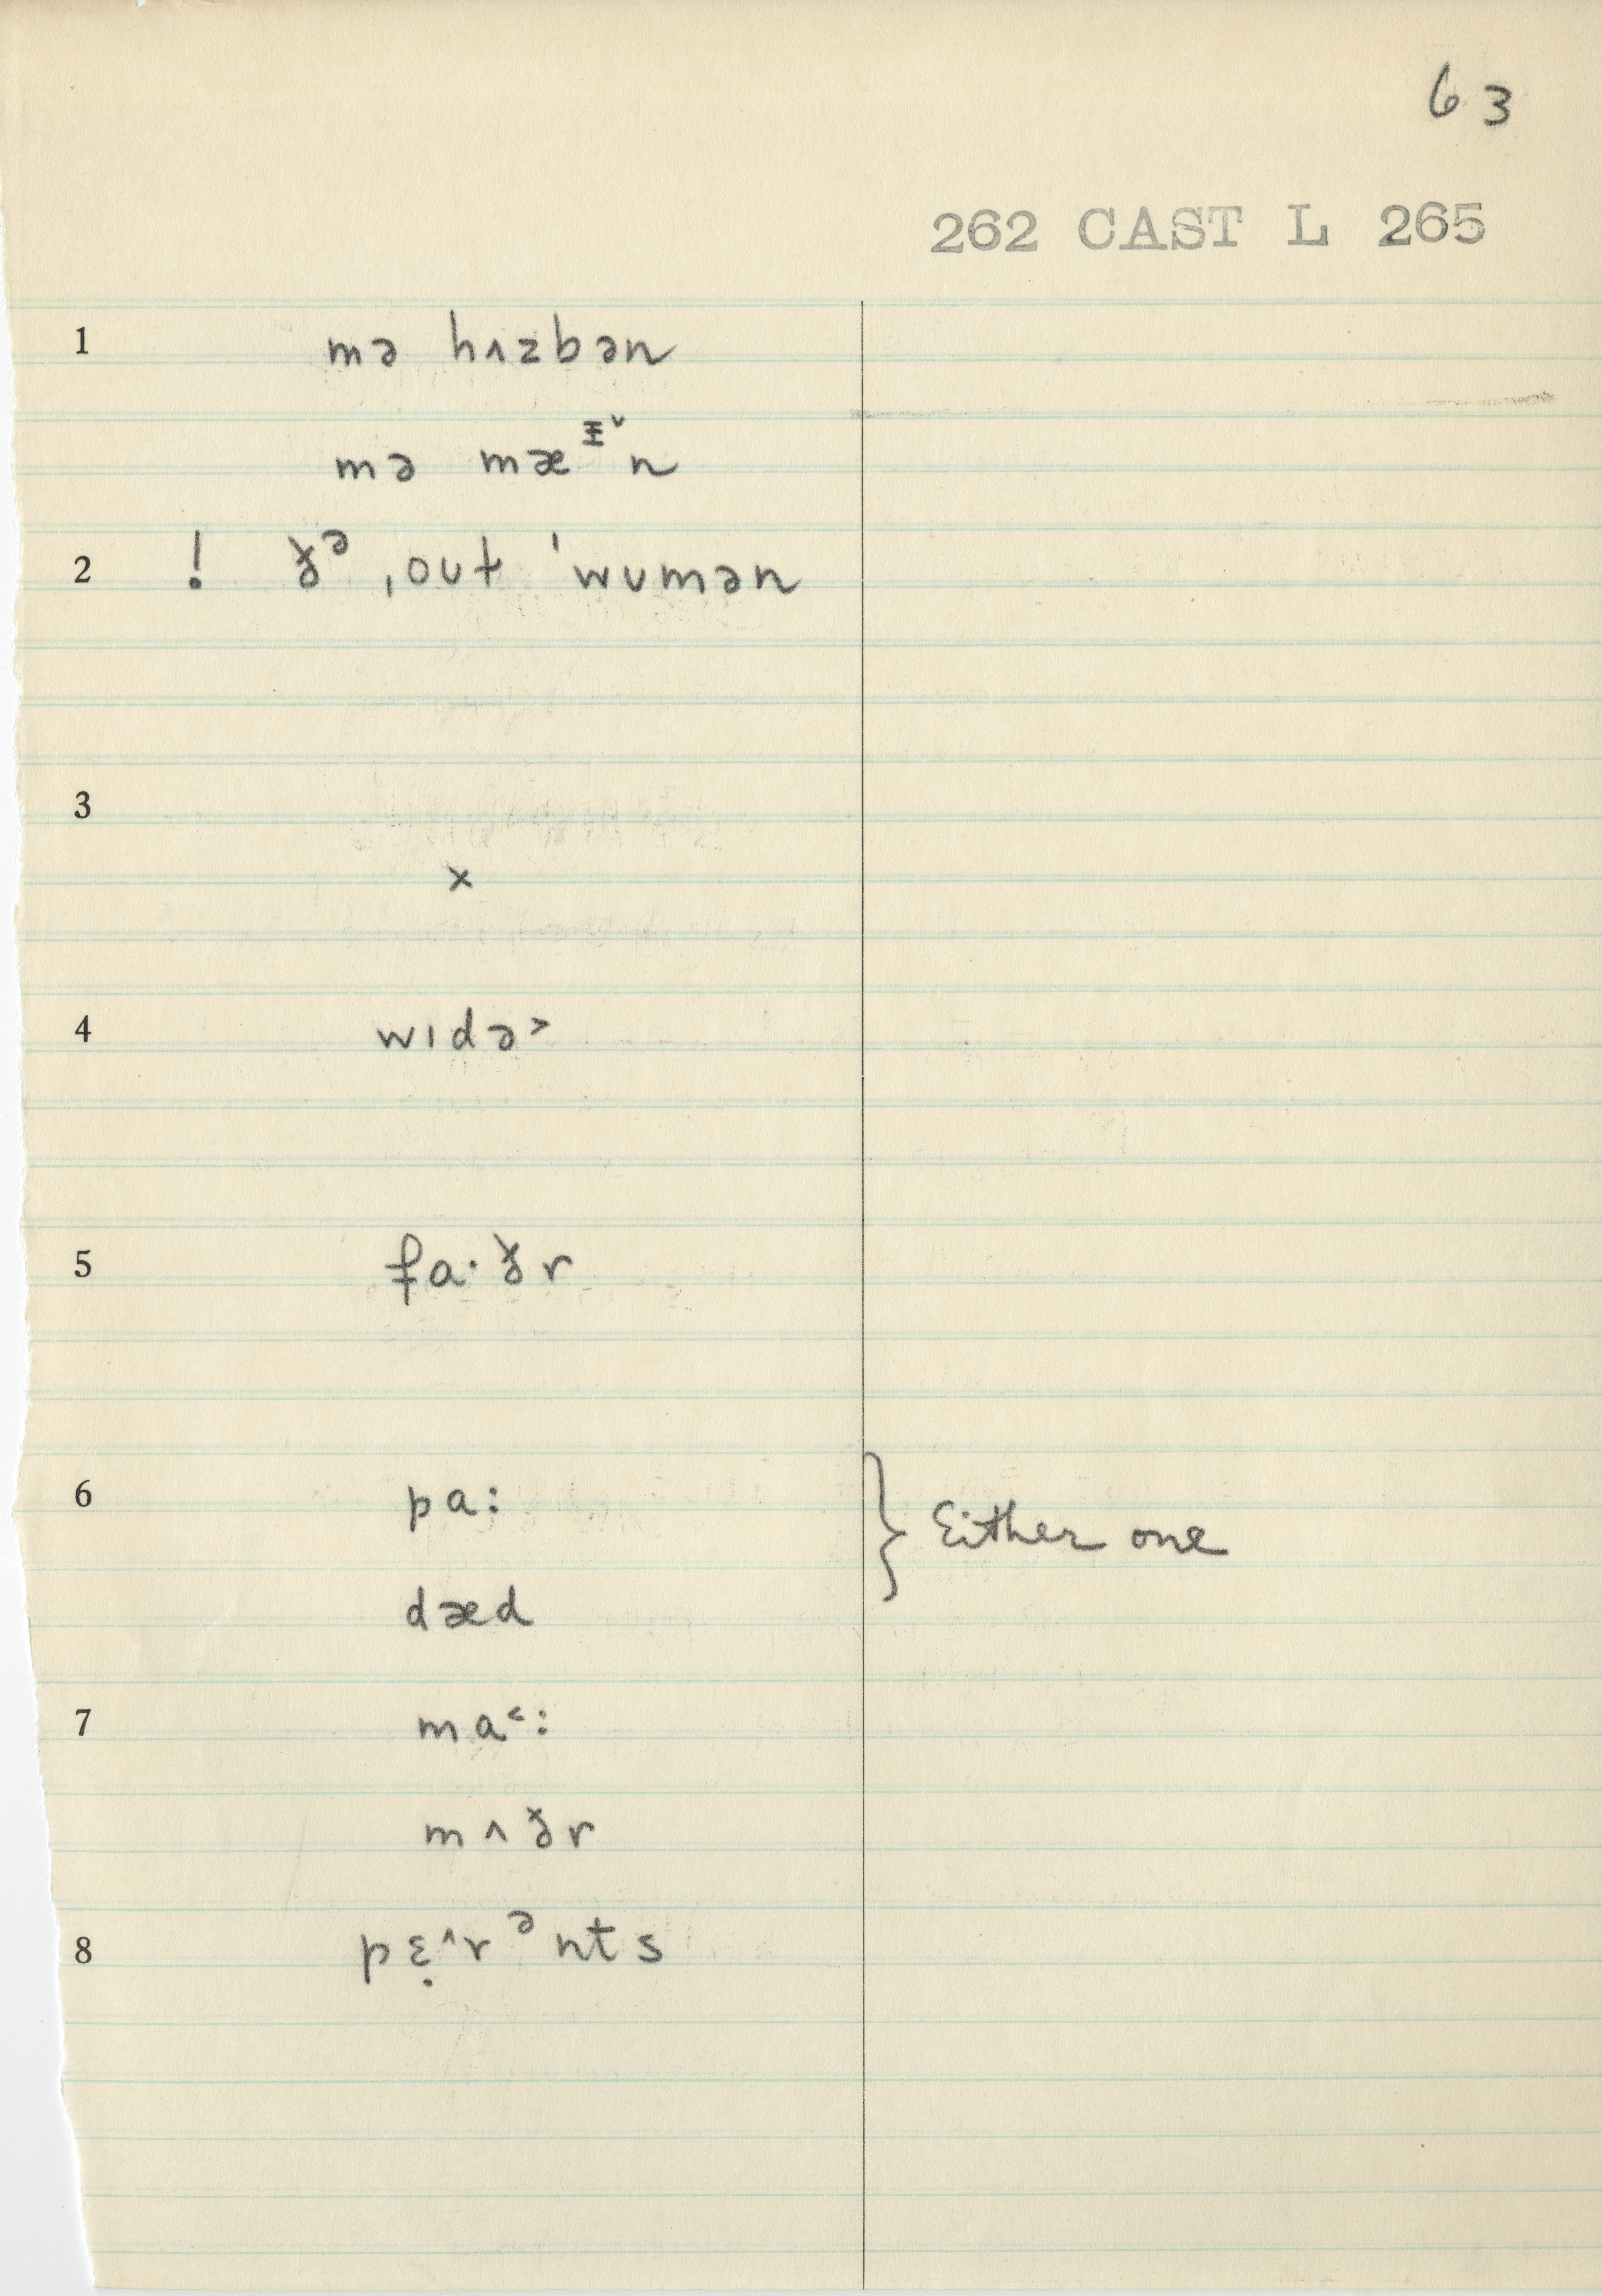 63
262 CAST L 265
1 mə hʌzbən
mə mæᵻ˅n
2 ! ðᵊ ˌout ˈwumən
3
×
4 wɪdə˃
5 fa·ðr
6 pa: } Either one
dæd
7 ma˂:
mʌðr
8 pɛ̣˄rᵊnts